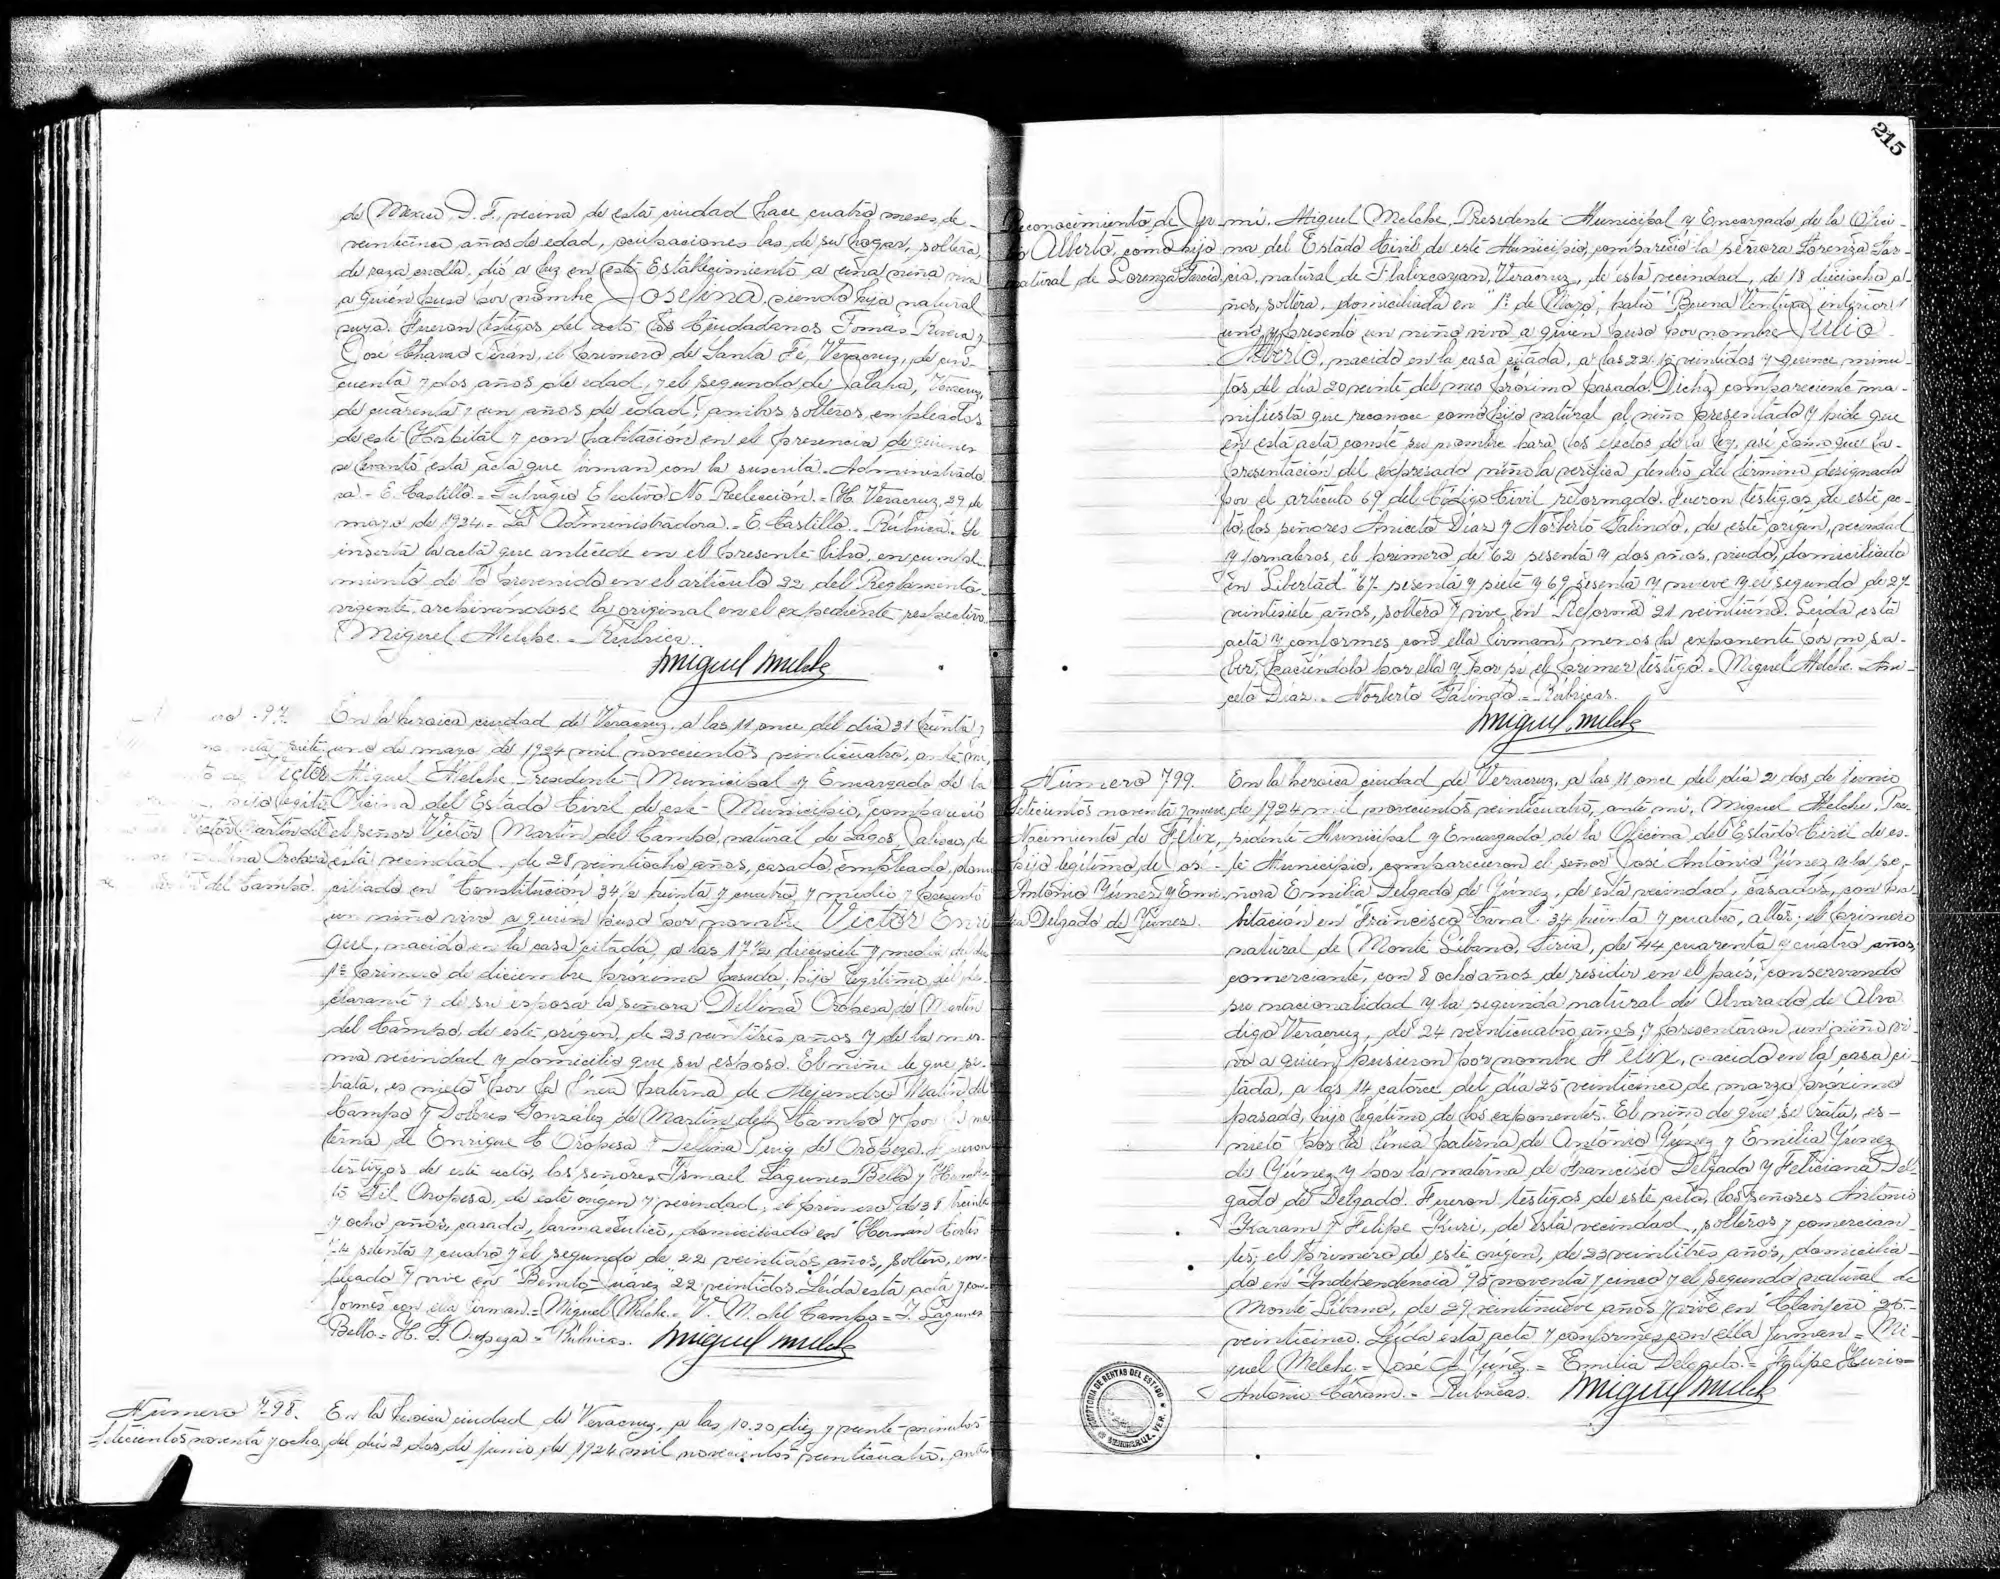 de Mexico D. F., vecina de esta ciudad hace cuatro meses, de
veinticinco años de edad, ocupaciones las de su hogar, soltera,
de raza criolla, dió a luz en este Establecimiento a una niña viva
a quién puso por nombre Josefina, siendo hija natural
suya. Fueron testigos del acto los Ciudadanos Tomás Rivera y
José Chavao Terán, el primero de Santa Fé, Veracruz, de cin-
cuenta y dos años de edad, y el segundo de Jalapa, Veracruz,
de cuarenta y un años de edad; ambos solteros, empleados
de este Hospital y con habitación en el presencia de quienes
se levantó esta acta que firman con la suscrita Administrado
ra.- E. Castillo.- Sufragio Efectivo No Reelección.- H. Veracruz, 29 de
marzo de 1924.- La Administradora.- E. Castillo.- Rúbrica.- Se
inserta la acta que antecede en el presente libro, en cumpli-
miento de lo prevenido en el artículo 22 del Reglamento
vigente archivándose la original en el expediente respectivo.
Miguel Melche.- Rúbrica.
Miguel Melche
97. En la heroica ciudad de Veracruz, a las 11 once del día 31 treinta y
siete. uno de marzo de 1924 mil novecientos veinticuatro, ante mí,
Victor Miguel Melche Presidente Municipal y Encargado de la
hijo legíti Oficina del Estado Civil de este Municipio, compareció
Victor Martin del el señor Victor Martin del Campo, natural de Lagos, Jalisco, de
Oropesa esta vecindad, de 28 veintiocho años, casado, empleado, domi
del Campo. ciliado en "Constitución" 34½ treinta y cuatro y medio y presentó
un niño vivo a quién puso por nombre Victor Enri
que, nacido en la casa citada, a las 17½ diecisiete y media del día
1º primero de diciembre próximo pasado, hijo legítimo del de-
clarante y de su esposa la señora Delfina Oropesa de Martin
del Campo, de este origen, de 23 veintitrés años y de la mis-
ma vecindad y domicilio que su esposo. El niño de que se
trata, es nieto por la línea paterna de Alejandro Martin del
Campo y Dolores González de Martin del Campo y por la ma
terna de Enrique C. Oropesa y Delfina Puig de Oropesa. Fueron
testigos de este acto, los señores Ismael Lagunes Bello y
Gil Oropesa, de este origen y vecindad, el primero de 38 treinta
y ocho años, casado, farmacéutico, domiciliado en "Hernán Cortés"
74 setenta y cuatro y el segundo de 22 veintidos años, soltero, em-
pleado y vive en "Benito Juárez" 22 veintidos. Leída esta acta y con-
formes con ella firman.= Miguel Melche.- V. M. del Campo = I. Lagunes
Bello.= H. G. Oropeza = Rúbricas. Miguel Melche
Número 798. En la heroica ciudad de Veracruz, a las 10.20 diez y veinte minutos
Setecientos noventa y ocho, del día 2 dos de junio de 1924 mil novecientos veinticuatro, ante
215
Reconocimiento de Ju mí, Miguel Melche, Presidente Municipal y Encargado de la Ofici-
lio Alberto, como hijo na del Estado Civil de este Municipio, compareció la señora Lorenza Gar-
natural de Lorenza García cia, natural de Tlalixcoyan, Veracruz, de esta vecindad, de 18 dieciocho a-
ños, soltera, domiciliada en "1º de Mayo", patio "Buena Ventura" interior 1
uno, y presentó un niño vivo a quien puso por nombre Julio
Alberto, nacido en la casa citada, a las 22.15 veintidos y quince minu-
tos del día 20 veinte del mes próximo pasado. Dicha compareciente ma-
nifiesta que reconoce como hijo natural al niño presentado y pide que
en esta acta conste su nombre para los efectos de la ley, así como que la
presentación del expresado niño la verifica dentro del término designado
por el artículo 69 del Código Civil reformado. Fueron testigos de este ac-
to, los señores Aniceto Díaz y Norberto Galindo, de este origen, vecindad
y jornaleros, el primero de 62 sesenta y dos años, viudo, domiciliado
en "Libertad" 67 sesenta y siete y 69 sesenta y nueve y el segundo de 27
veintisiete años, soltero y vive en "Reforma" 21 veintiuno. Leída esta
acta y conformes con ella firman, menos la exponente por no sa-
ber, haciéndolo por ella y por sí el primer testigo.- Miguel Melche.- Ani-
ceto Díaz.- Norberto Galindo.= Rúbricas.
Miguel Melche
Número 799. En la heroica ciudad de Veracruz, a las 11 once del día 2 dos de junio
Setecientos noventa y nueve. de 1924 mil novecientos veinticuatro, ante mí, Miguel Melche, Pre-
Nacimiento de Félix, sidente Municipal y Encargado de la Oficina del Estado Civil de es-
hijo legítimo de José te Municipio, comparecieron el señor José Antonio Yúnez y la se-
Antonio Yúnez y Emi ñora Emilia Delgado de Yúnez, de esta vecindad, casados, con ha-
lia Delgado de Yúnez. bitación en "Francisco Canal" 34 treinta y cuatro, altos; el primero
natural de Monte Líbano, Siria, de 44 cuarenta y cuatro años,
comerciante, con 8 ocho años de residir en el país, conservando
su nacionalidad y la segunda natural de Alvarado de Alva
digo Veracruz, de 24 veinticuatro años; y presentaron un niño vi-
vo a quién pusieron por nombre Félix, nacido en la casa ci-
tada, a las 14 catorce del día 25 veinticinco de marzo próximo
pasado, hijo legítimo de los exponentes. El niño de que se trata, es-
nieto por la línea paterna de Antonio Yúnez y Emilia Yúnez
de Yúnez y por la materna de Francisco Delgado y Feliciana Del-
gado de Delgado. Fueron testigos de este acto, los señores Antonio
Karam y Felipe Kuri, de esta vecindad, solteros y comercian
tes; el primero de este origen, de 23 veintitrés años, domicilia-
do en "Independencia" 95 noventa y cinco y el segundo natural de
Monte Líbano, de 29 veintinueve años y vive en "Clavijero" 25-
veinticinco. Leída esta acta y conformes con ella firman = Mi-
guel Melche.= José A. Yúnez.= Emilia Delgado.= Felipe Kuri.=
Antonio Caram.- Rúbricas. Miguel Melche
RECEPTORIA DE RENTAS DEL ESTADO
VERACRUZ, VER.